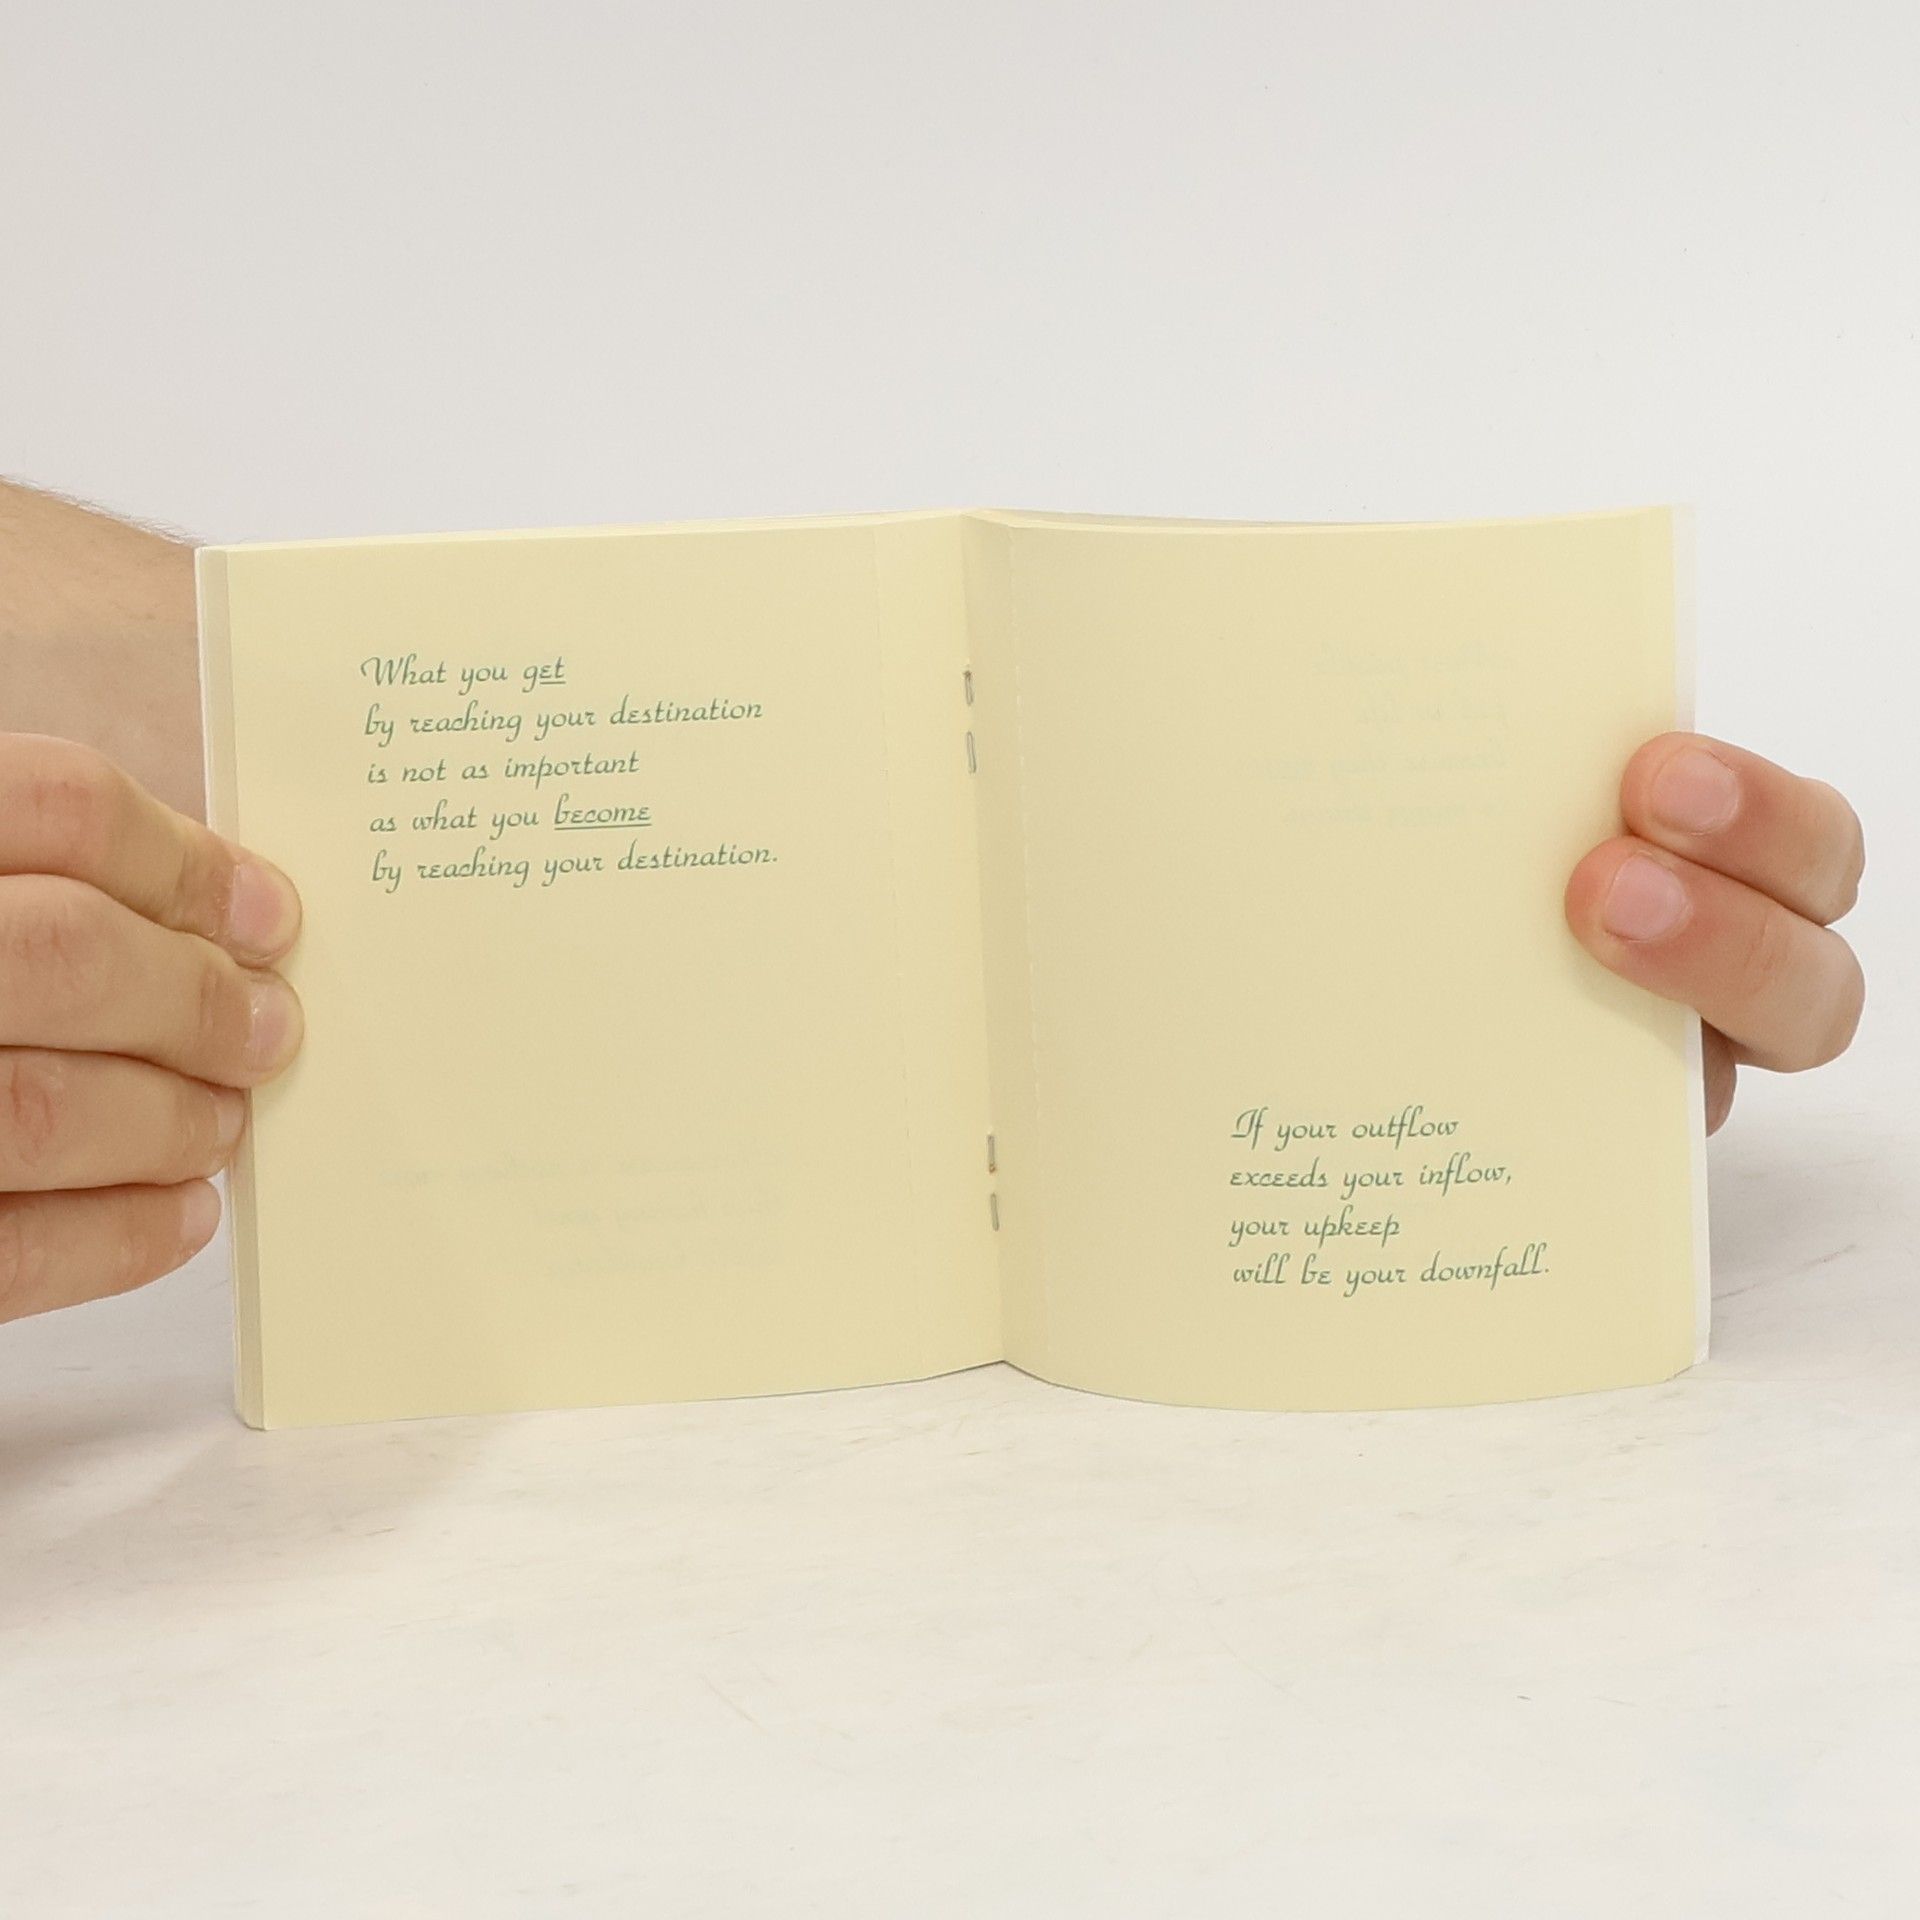 What you get
by reaching your destination
is not as important
as what you become
by reaching your destination.
If your outflow
exceeds your inflow,
your upkeep
will be your downfall.